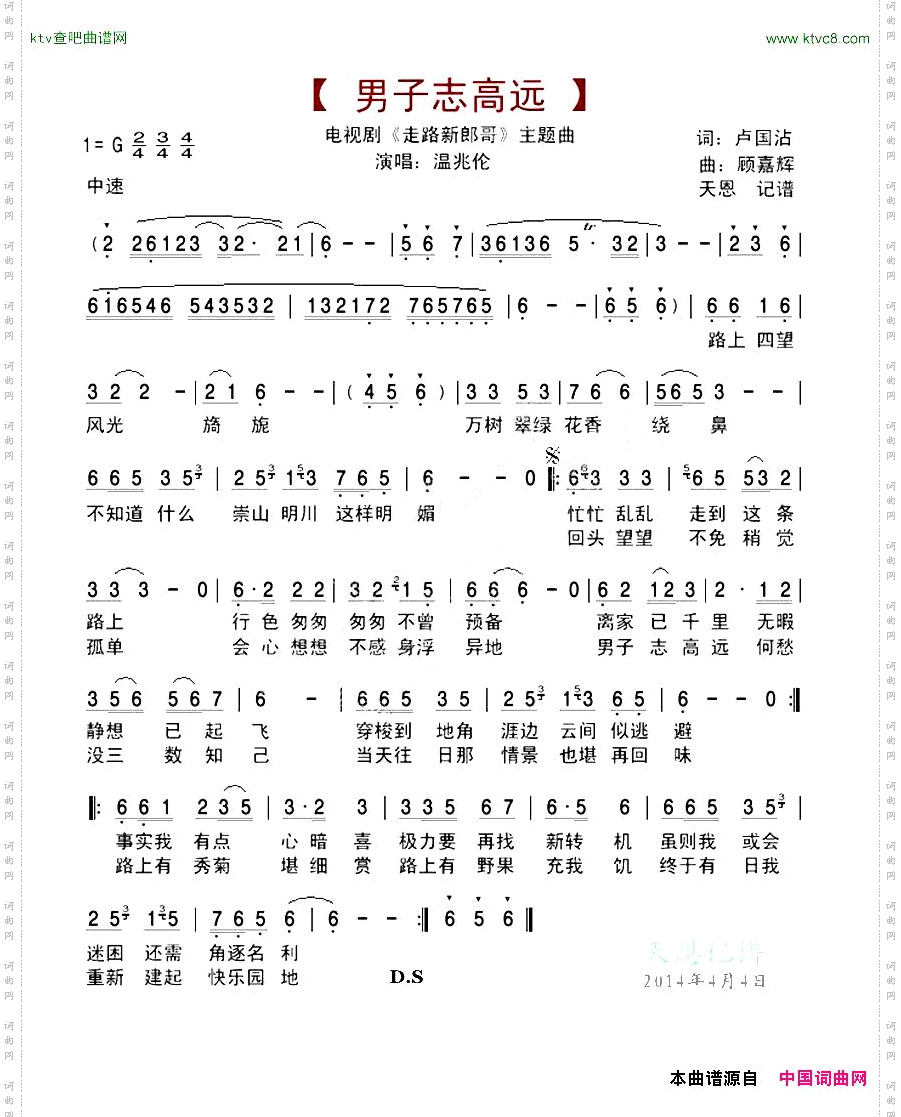 ktv查吧曲谱网
www.ktvc8.com
【 男子志高远 】
电视剧《走路新郎哥》主题曲
演唱：温兆伦
词：卢国沾
曲：顾嘉辉
天恩 记谱
1=G 2/4 3/4 4/4
中速
( 2 26123 32· 21 | 6 - - | 5 6 7 | 36136 5· 32 | 3 - - | 2 3 6 |
616546 543532 | 132172 765765 | 6 - - | 6 5 6 ) | 6 6 1 6
路上 四望
3 2 2 - | 2 1 6 - - | ( 4 5 6 ) | 3 3 5 3 | 7 6 6 | 56 5 3 - - |
风光 旖旎 万树 翠绿 花香 绕 鼻
6 6 5 3 5 3 | 2 5 3 1 5 3 7 6 6 | 6 - - 0 |: 6 6 3 3 3 | 6 6 5 53 2 |
不知道 什么 崇山 明川 这样明 媚 忙忙 乱乱 走到 这 条
回头 望望 不免 稍 觉
3 3 3 - 0 | 6· 2 2 2 | 3 2 2 1 5 | 6 6 6 - 0 | 6 2 12 3 | 2 · 1 2 |
路上 行 色 匆匆 匆匆 不曾 预备 离家 已 千 里 无暇
孤单 会 心 想想 不感 身浮 异地 男子 志 高 远 何愁
3 5 6 5 6 7 | 6 - | 6 6 5 3 5 | 2 5 3 1 5 3 6 5 | 6 - - 0 :|
静想 已 起 飞 穿梭到 地角 涯边 云间 似逃 避
没三 数 知 己 当天往 日那 情景 也堪 再回 味
|: 6 6 1 2 3 5 | 3· 2 3 | 3 5 6 6 7 | 6· 5 6 | 6 6 5 3 5 3 |
事实我 有点 心 暗 喜 极力要 再找 新转 机 虽则我 或会
路上有 秀菊 堪 细 赏 路上有 野果 充我 饥 终于有 日我
2 5 3 1 3 5 | 7 6 5 6 | 6 - - :| 6 5 6 ‖
迷困 还需 角逐名 利
重新 建起 快乐园 地 D.S
天恩记谱
2014年4月4日
本曲谱源自 中国词曲网